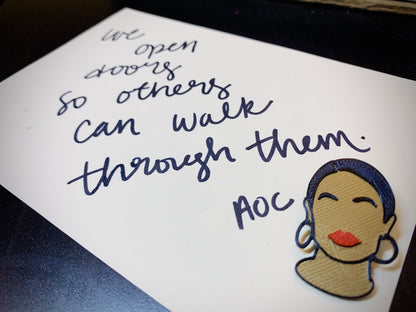 we
open
doors
so others
can walk
through them.
AOC